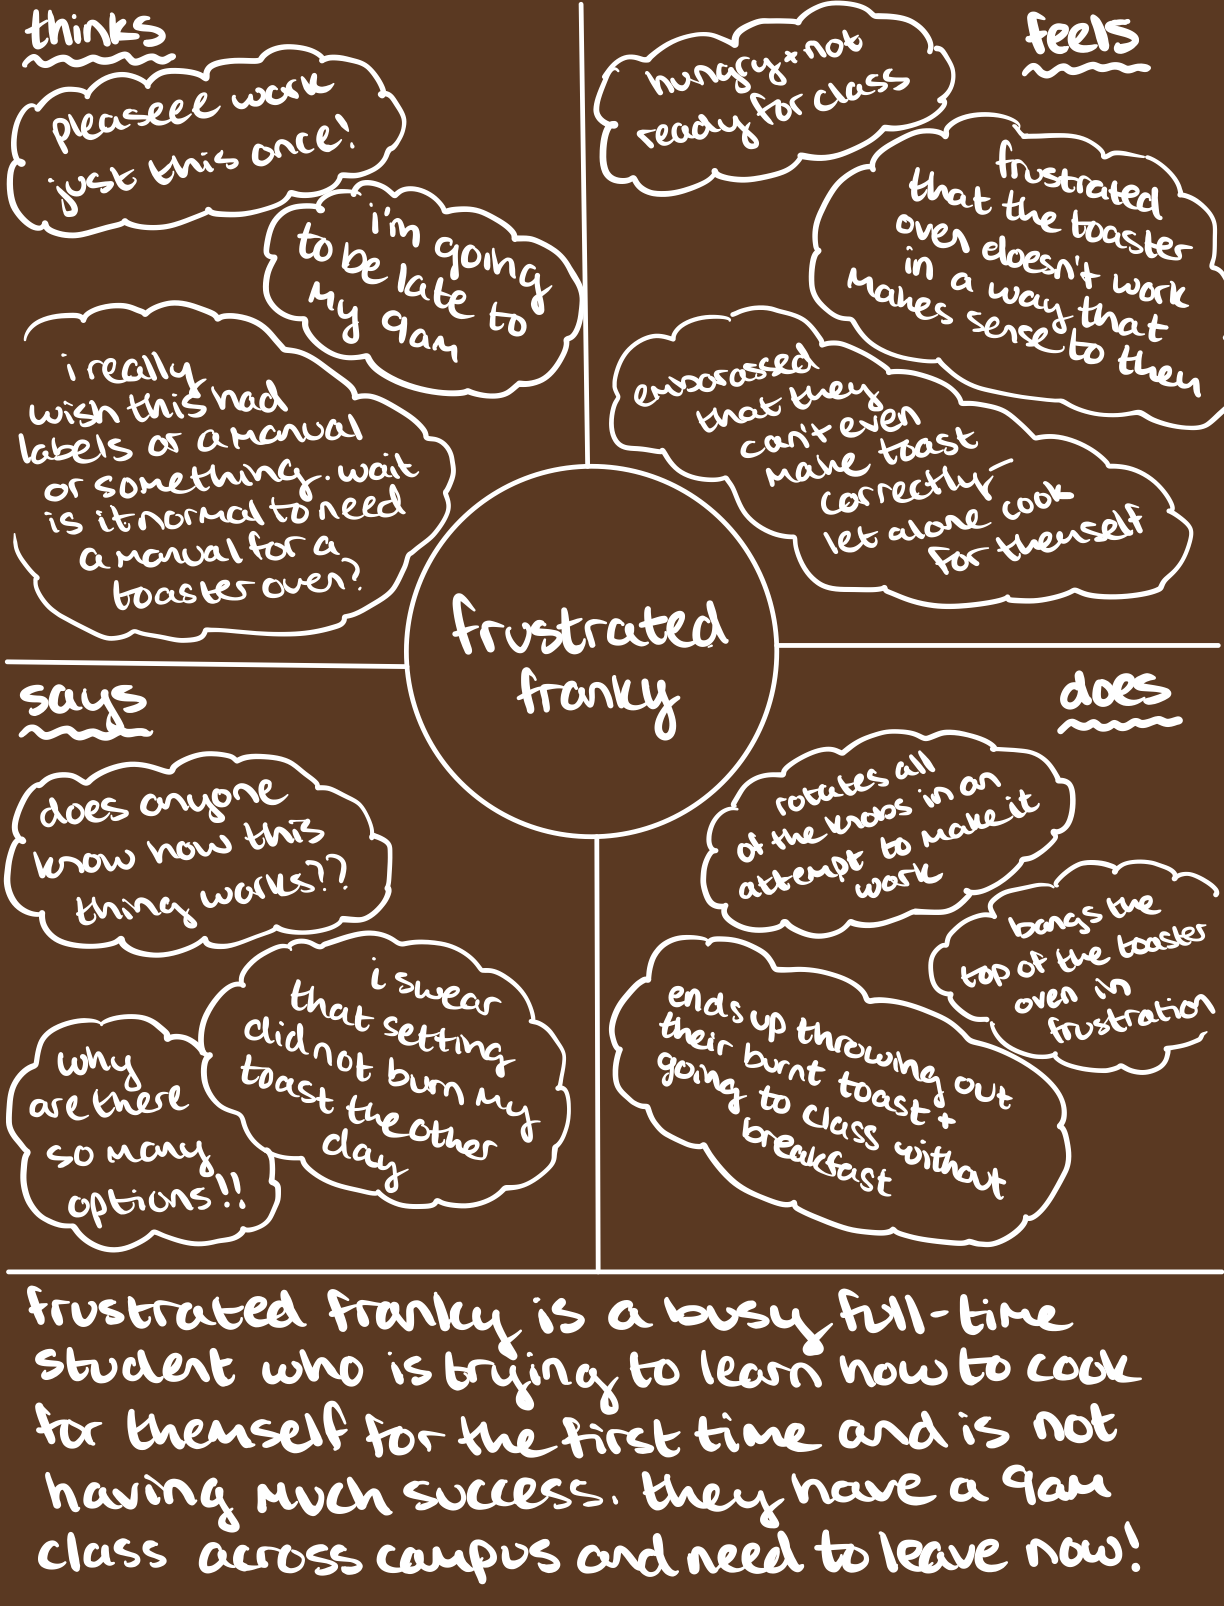 thinks
pleaseee work
just this once!
i'm going
to be late to
my 9am
i really
wish this had
labels or a manual
or something. wait
is it normal to need
a manual for a
toaster oven?
feels
hungry + not
ready for class
frustrated
that the toaster
oven doesn't work
in a way that
makes sense to them
emborassed
that they
can't even
make toast
correctly—
let alone cook
for themself
frustrated
franky
says
does anyone
know how this
thing works??
i swear
that setting
did not burn my
toast the other
day
why
are there
so many
options!!
does
rotates all
of the knobs in an
attempt to make it
work
bangs the
top of the toaster
oven in
frustration
ends up throwing out
their burnt toast +
going to class without
breakfast
frustrated franky is a busy full-time
student who is trying to learn how to cook
for themself for the first time and is not
having much success. they have a 9am
class across campus and need to leave now!